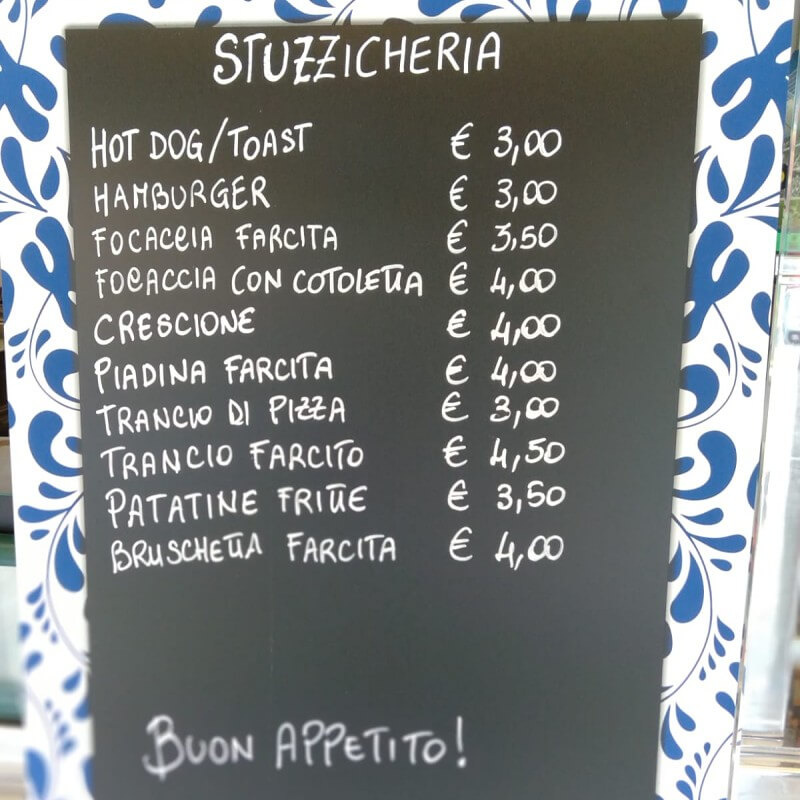 STUZZICHERIA
HOT DOG/TOAST € 3,00
HAMBURGER € 3,00
FOCACCIA FARCITA € 3,50
FOCACCIA CON COTOLETTA € 4,00
CRESCIONE € 4,00
PIADINA FARCITA € 4,00
TRANCIO DI PIZZA € 3,00
TRANCIO FARCITO € 4,50
PATATINE FRITTE € 3,50
BRUSCHETTA FARCITA € 4,00
BUON APPETITO!